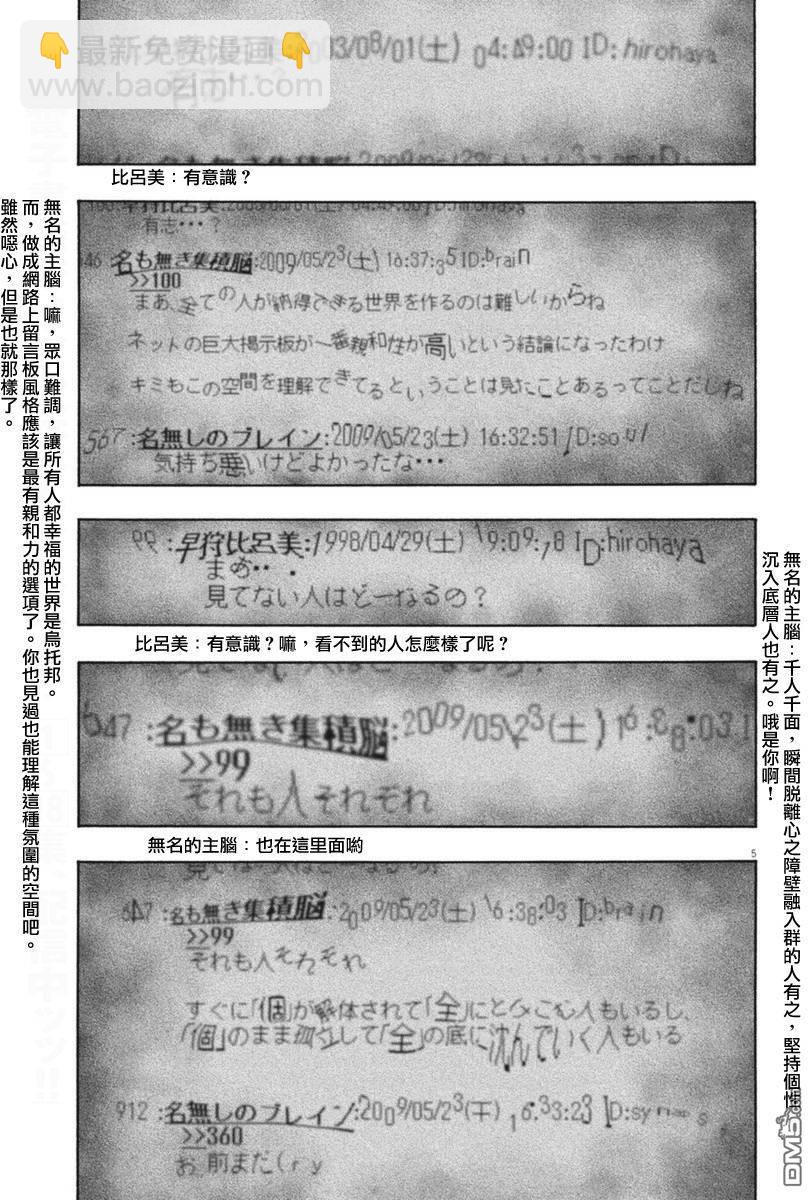 最新免费漫画
www.baozimh.com
03/08/01(土) 04:49:00 ID:hirohaya
有志・・・?
比呂美：有意識？
有志・・・?
名も無き集積脳:2009/05/23(土) 16:37:35 ID:brain
>>100
まあ、全ての人が納得できる世界を作るのは難しいからね
ネットの巨大掲示板が一番親和性が高いという結論になったわけ
キミもこの空間を理解できてるということは見たことあるってことだしね
567:名無しのブレイン:2009/05/23(土) 16:32:51 ID:soul
気持ち悪いけどよかったな・・・
無名的主腦：嘛，眾口難調，讓所有人都幸福的世界是烏托邦。
而，做成網路上留言板風格應該是最有親和力的選項了。你也見過也能理解這種氛圍的空間吧。
雖然噁心，但是也就那樣了。
99:早狩比呂美:1998/04/29(土) 19:09:78 ID:hirohaya
まぁ・・・
見てない人はどーなるの？
比呂美：有意識？嘛，看不到的人怎麼樣了呢？
647:名も無き集積脳:2009/05/23(土) 16:38:03 I
>>99
それも人それぞれ
無名的主腦：千人千面，瞬間脱離心之障壁融入群的人有之，堅持個性
沉入底層人也有之。哦是你啊！
無名的主腦：也在這里面喲
5
647:名も無き集積脳:2009/05/23(土) 16:38:03 ID:brain
>>99
それも人それぞれ
すぐに｢個｣が解体されて｢全｣にとけこむ人もいるし、
｢個｣のまま孤立して｢全｣の底に沈んでいく人もいる
912:名無しのブレイン:2009/05/23(土) 16:33:23 ID:synaps
>>360
お前まだ(ry
DM5